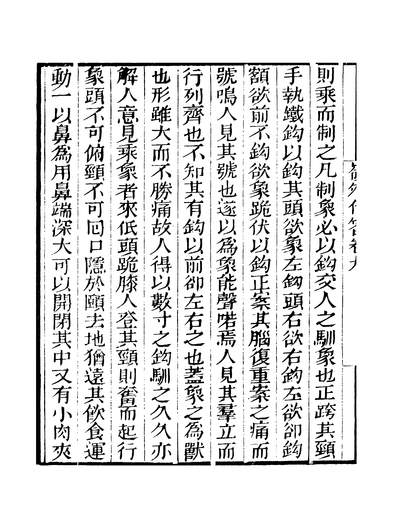 嶺外代答卷九
則乘而制之凡制象必以鈎交人之馴象也正跨其頸
手執鐵鈎以鈎其頭欲象左鈎頭右欲右鈎左欲卻鈎
額欲前不鈎欲象跪伏以鈎正案其腦復重案之痛而
號鳴人見其號也遂以為象能聲喏焉人見其羣立而
行列齊也不知其有鈎以前卻左右之也蓋象之為獸
也形雖大而不勝痛故人得以數寸之鈎馴之久久亦
解人意見乘象者來低頭跪膝人登其頸則奮而起行
象頭不可俯頸不可回口隱於頤去地猶遠其飲食運
動一以鼻為用鼻端深大可以開閉其中又有小肉夾